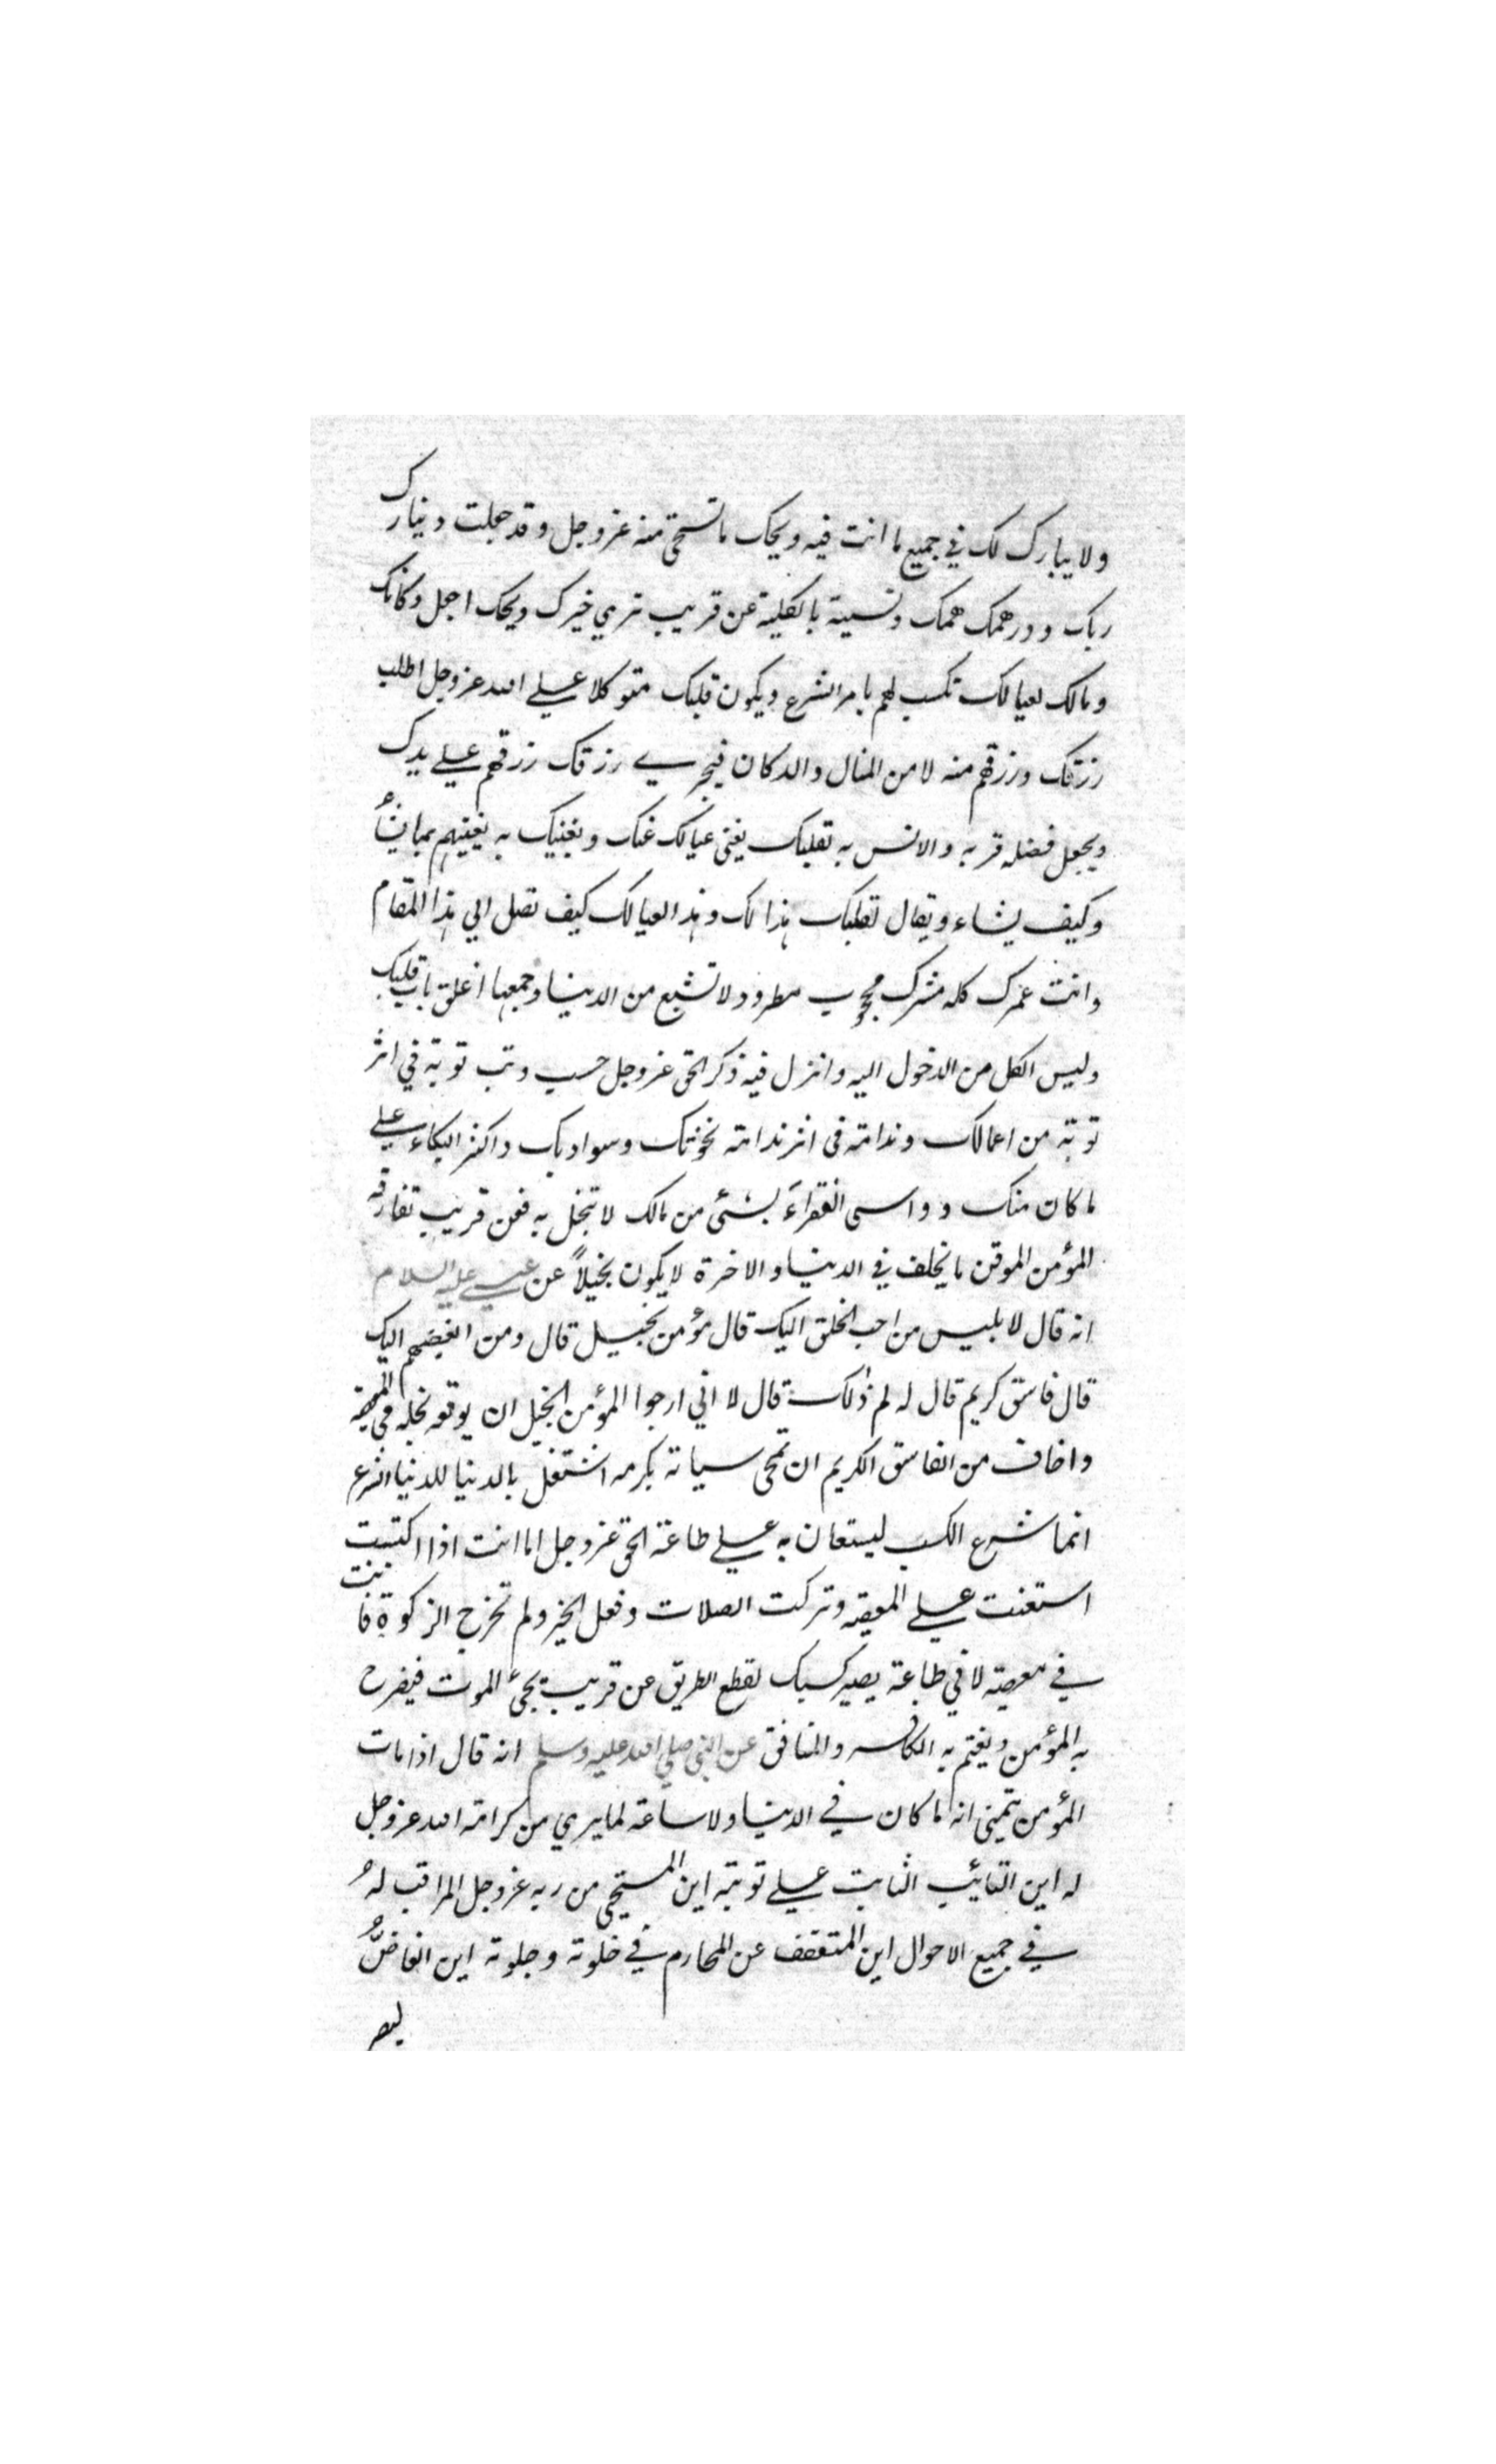 ولا يبارك لك في جميع ما انت فيه ويحك ما تستحي منه عز وجل وقد جعلت دينارك
ربك ودرهمك همك ونسيته بالكلية عن قريب تري خبرك ويحك اجعل دكانك
ومالك لعيالك تكسب لهم بامر الشرع ويكون قلبك متوكلا علي الله عز وجل اطلب
رزقك ورزقهم منه لا من المال والدكان فيجري رزقك رزقهم علي يدك
ويجعل فضله قربه والانس به لقلبك يغني عيالك عنك ويغنيك به يغنيهم بما يشأ
وكيف يشاء ويقال لقلبك هذا لك وهذا لعيالك كيف تصل الي هذا المقام
وانت عمرك كله مشرك محجوب مطرود لا تشبع من الدنيا وجمعها اغلق باب قلبك
وليس الكل من الدخول اليه وانزل فيه ذكر الحق عز وجل حسب وتب توبة في اثر
توبة من اعمالك وندامة في اثر ندامة نخوتك وسوادبك واكثر البكاء علي
ما كان منك وواسي الفقراَء بشئ من مالك لا تبخل به فعن قريب تفارقه
المؤمن الموقن ما يخلف في الدنيا والاخرة لا يكون بخيلاً عن عيسي عليه السلام
انه قال لابليس من احب الخلق اليك قال مؤمن بخيل قال ومن ابغضهم اليك
قال فاسق كريم قال له لم ذلك قال لاني ارجوا المؤمن البخيل ان يوقعه بخله في المعصية
واخاف من الفاسق الكريم ان تمحي سياته بكرمه اشتغل بالدنيا للدنيا الشرع
انما شرع الكسب ليستعان به علي طاعة الحق عز وجل اما انت اذا اكتسبت
استعنت علي المعصية وتركت الصلات وفعل الخير ولم تخرج الزكوة فانت
في معصية لا في طاعة يصير كسبك لقطع الطريق عن قريب يجئ الموت فيفرح
به المؤمن ويغتم به الكافر والمنافق عن النبي صلي الله عليه وسلم انه قال اذا مات
المؤمن يتمني انه ما كان في الدنيا ولا ساعة لما يري من كرامة الله عز وجل
له اين التائب الثابت علي توبته اين المستحي من ربه عز وجل المراقب لهُ
في جميع الاحوال اين المتعفف عن المحارم في خلوته وجلوته اين الغاضُّ
لبصر